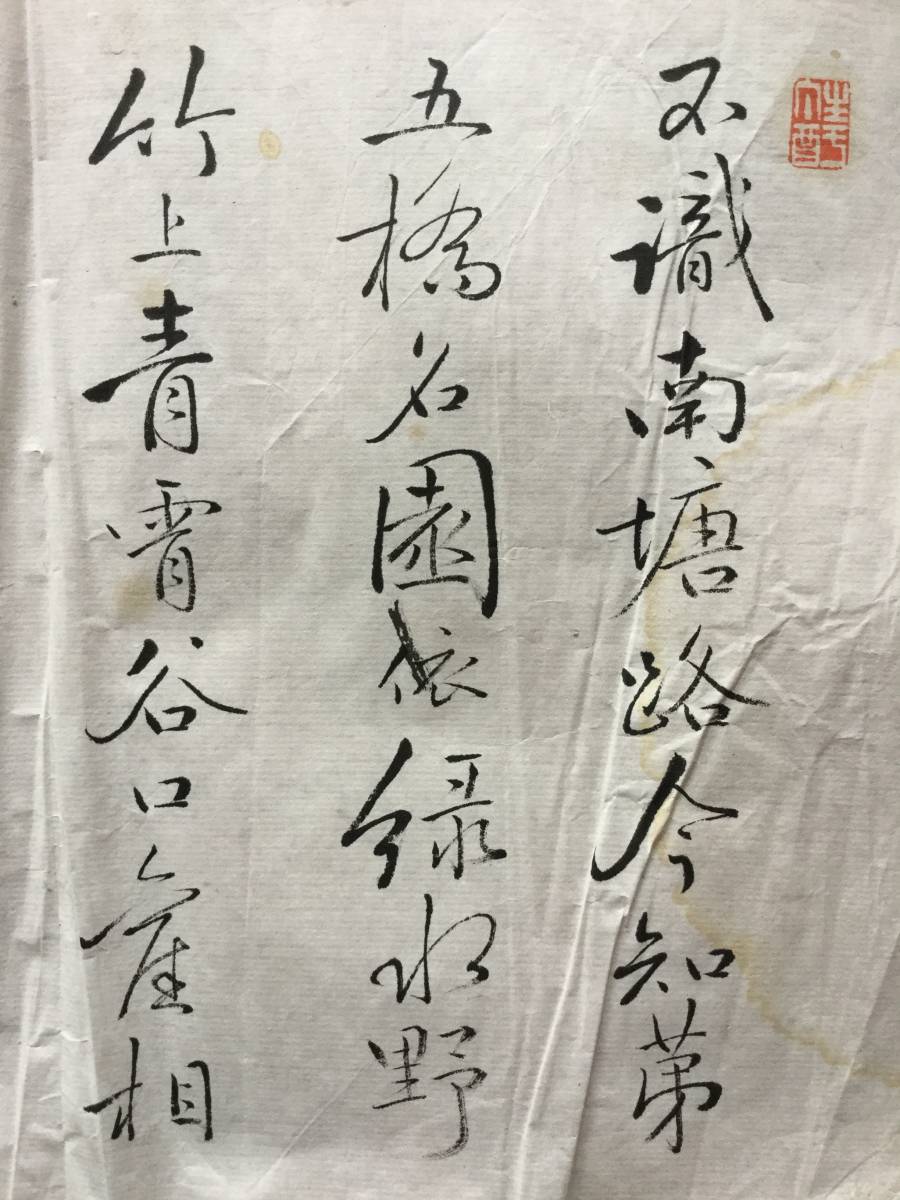 不識南塘路今知第
五橋名園依綠水野
竹上青霄谷口舊相